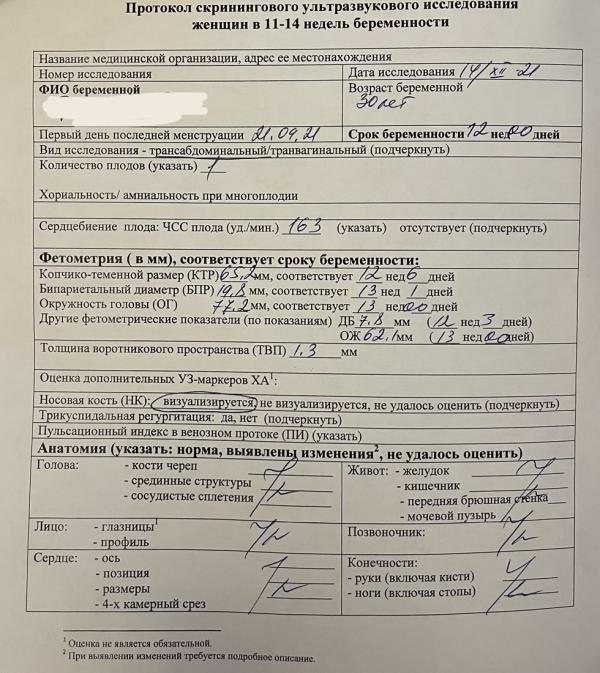 Протокол скринингового ультразвукового исследования
женщин в 11-14 недель беременности
Название медицинской организации, адрес ее местонахождения
Номер исследования
Дата исследования 14/XII-21
ФИО беременной
Возраст беременной
30 лет
Первый день последней менструации 21.09.21
Срок беременности 12 нед 00 дней
Вид исследования - трансабдоминальный/транвагинальный (подчеркнуть)
Количество плодов (указать) 1
Хориальность/ амниальность при многоплодии
Сердцебиение плода: ЧСС плода (уд./мин.) 163 (указать) отсутствует (подчеркнуть)
Фетометрия ( в мм), соответствует сроку беременности:
Копчико-теменной размер (КТР) 65,2 мм, соответствует 12 нед 6 дней
Бипариетальный диаметр (БПР) 19,8 мм, соответствует 13 нед 1 дней
Окружность головы (ОГ) 77,2 мм, соответствует 13 нед 00 дней
Другие фетометрические показатели (по показаниям) ДБ 7,8 мм (12 нед 3 дней)
ОЖ 62,1 мм (13 нед 00 дней)
Толщина воротникового пространства (ТВП) 1,3 мм
Оценка дополнительных УЗ-маркеров ХА1:
Носовая кость (НК): визуализируется, не визуализируется, не удалось оценить (подчеркнуть)
Трикуспидальная регургитация: да, нет (подчеркнуть)
Пульсационный индекс в венозном протоке (ПИ) (указать)
Анатомия (указать: норма, выявлены изменения2, не удалось оценить)
Голова: - кости череп
- срединные структуры
- сосудистые сплетения
Живот: - желудок
- кишечник
- передняя брюшная стенка
- мочевой пузырь
Лицо: - глазницы1
- профиль
Позвоночник:
Сердце: - ось
- позиция
- размеры
- 4-х камерный срез
Конечности:
- руки (включая кисти)
- ноги (включая стопы)
1 Оценка не является обязательной.
2 При выявлении изменений требуется подробное описание.